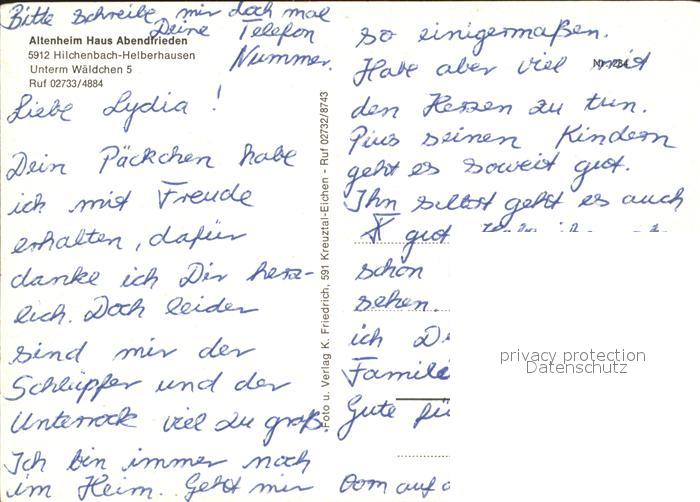 Bitte schreibe mir doch mal
Deine Telefon
Nummer.
Altenheim Haus Abendfrieden
5912 Hilchenbach-Helberhausen
Unterm Wäldchen 5
Ruf 02733/4884
Liebe Lydia !
Dein Päckchen habe
ich mit Freude
erhalten, dafür
danke ich Dir herz-
lich. Doch leider
sind mir der
Schlüpfer und der
Unterrock viel zu groß.
Ich bin immer noch
im Heim. Geht mir
Foto u. Verlag K. Friedrich, 591 Kreuztal-Eichen - Ruf 02732/8743
so einigermaßen.
Habe aber viel mit
den Herzen zu tun.
Pius seinen Kindern
geht es soweit gut.
Ihn selbst geht es auch
gut
schon
sehen.
ich
Familie
Gute für
auf
privacy protection
Datenschutz